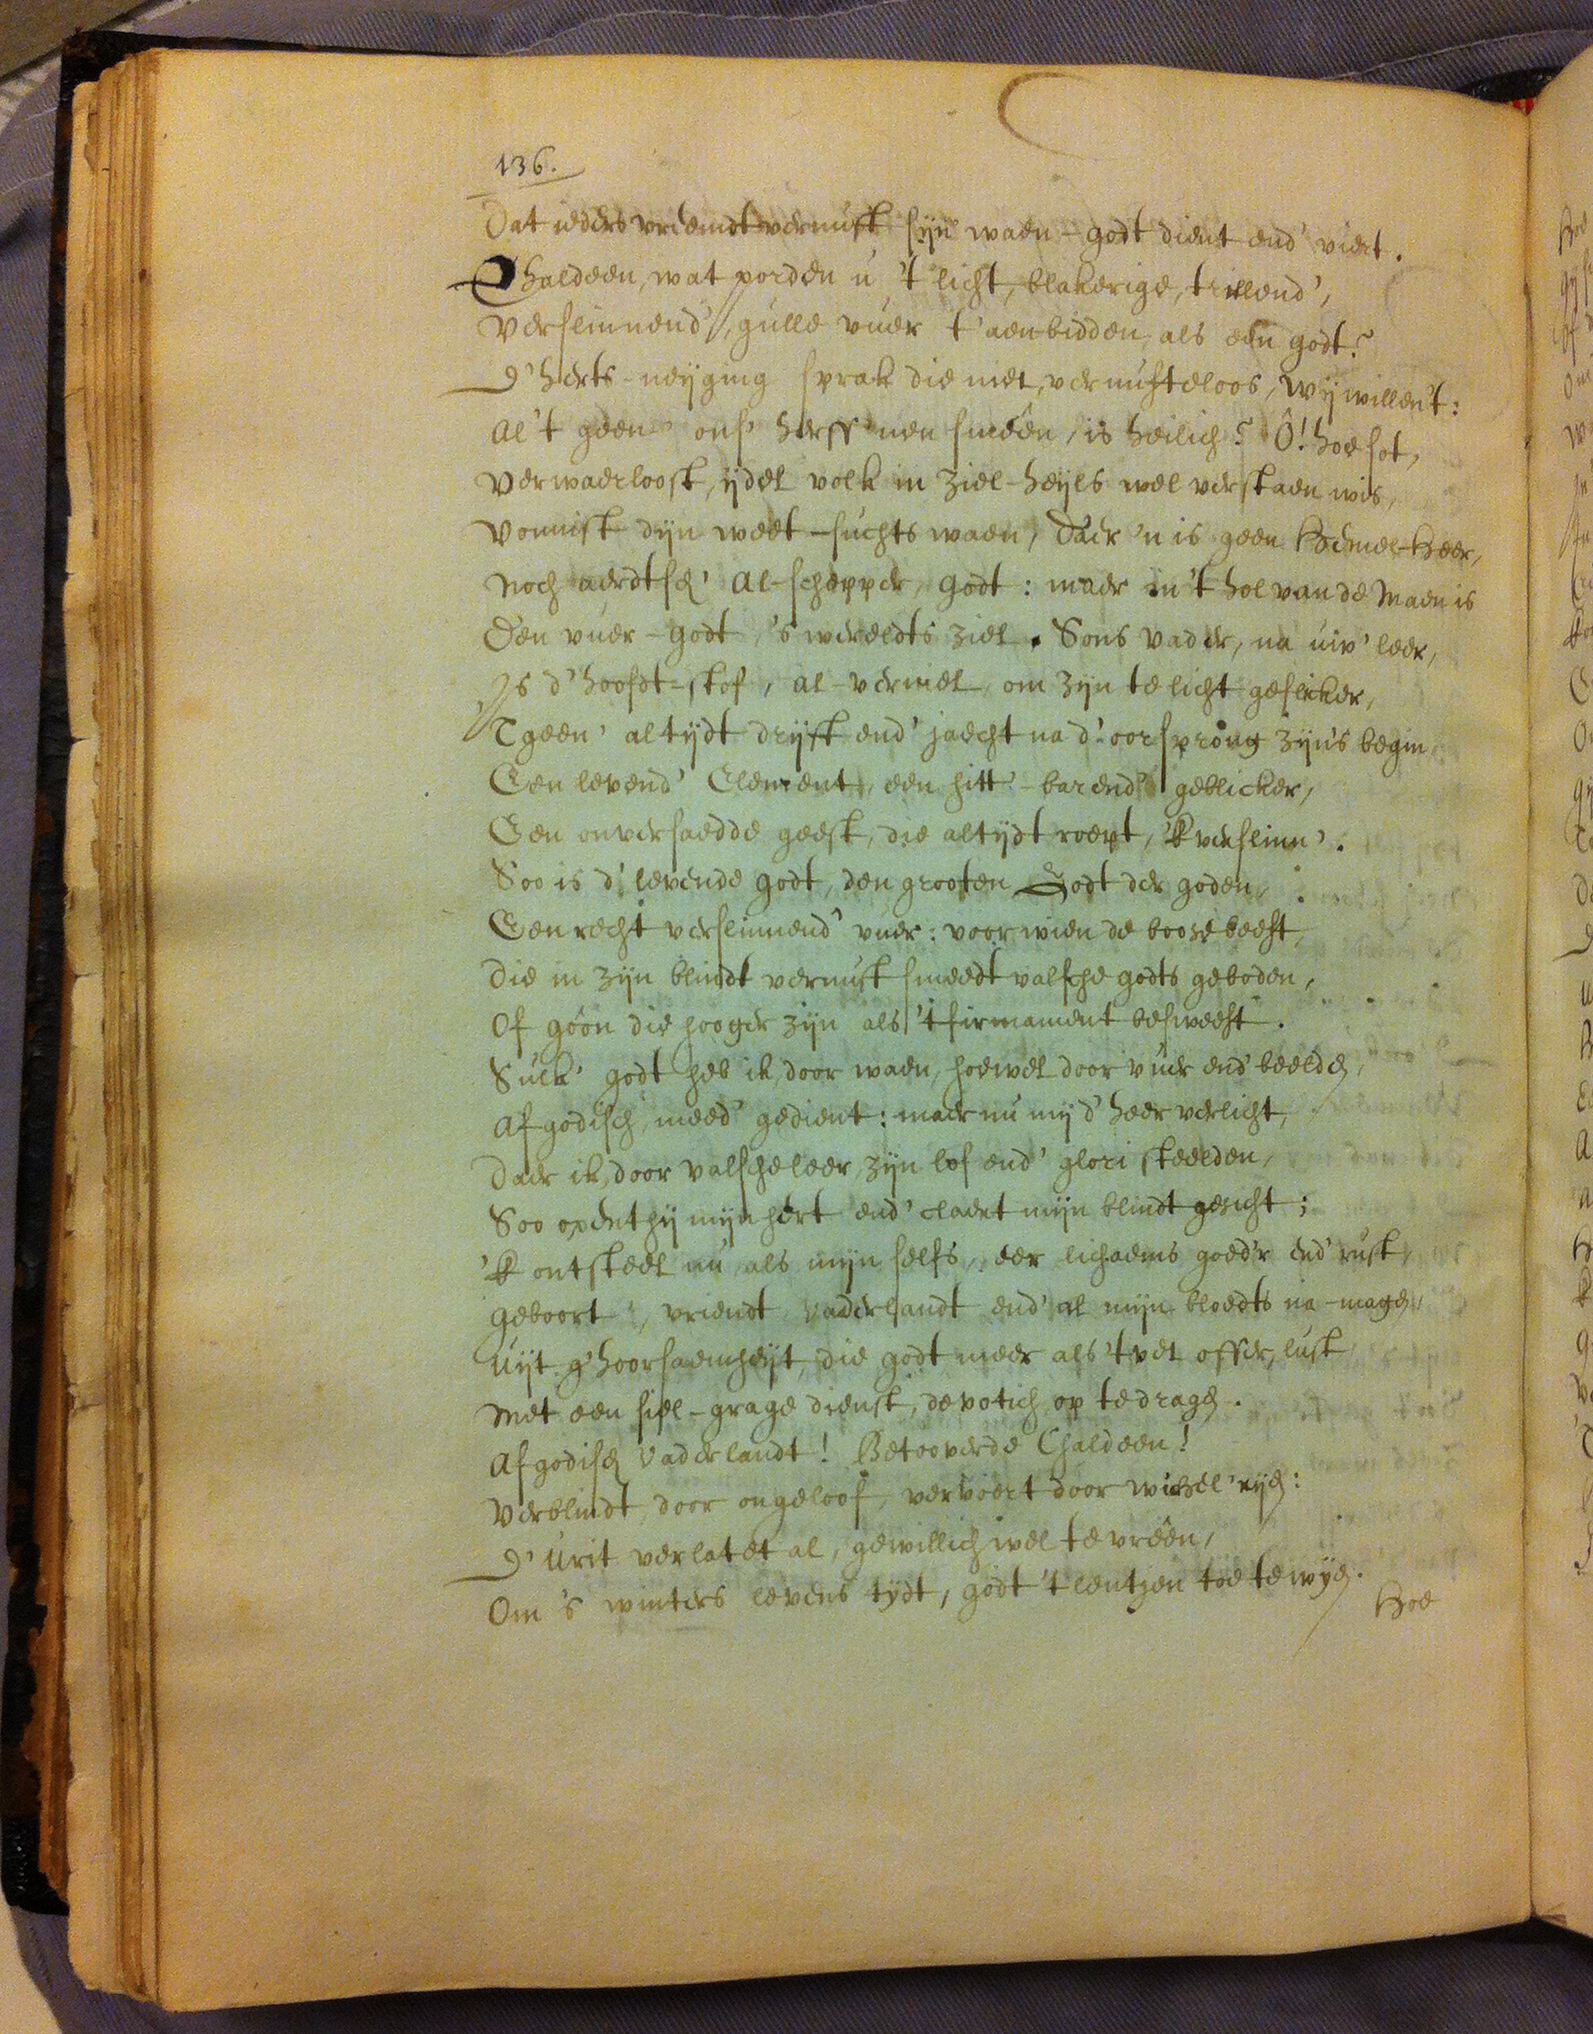 136.
Dat ieders vreemdt vernuft sijn waen-godt dient end' viert.
Chaldeen, wat porden u 't licht, blakerige, trillend',
Verslinnend', gulle vuer t'aenbidden als een godt?
D'herts-neyging sprak die niet, vernufteloos, wy willen't:
Al 't geen' ons' herss'nen smeên, is heilich? Ô! hoe sot,
Verwaerloost, ydel volk in ziel-heyls wel verstaen wis,
Vonnist dyn weet-suchts waen, daer 'n is geen Hemel-heer,
Noch aerdtsch' Al-schepper, godt: maer in 't hol van de Maen is
Een vuer-godt, 's wereldts ziel. Sons vader, na uw' leer,
Is d'hoofdt-stof, al-verniel, om zijn te licht geflicker,
'Tgeen' altydt dryft end' jaecht na d'oorsprong zijns begin,
Een levend' Element, een hitt'-barend' geblicker,
Een onversaedde geest, die altydt roept, 'k verslinn'.
Soo is d'levende godt, den grooten Godt der goden,
Een recht verslinnend' vuer: voor wien de boose beeft,
Die in zijn blindt vernuft smeedt valsche godts geboden,
Of goôn die hooger zijn als 't firmament besweeft.
Sulk' godt heb ik, door waen, hoewel door vuer end' beelden,
Afgodisch, meed' gedient: maer nu my d'heer verlicht,
Daer ik, door valsche leer, zijn lof end' glori steelden,
Soo opent hy mijn hert end' claert mijn blindt gesicht;
'K ontsteel nu als mijn selfs, eer lichaems goed'r end' rust,
Geboort', vriendt, vaderlandt end' al mijn bloedts na-magen,
Uyt g'hoorsaemheyt, die godt meer als 't vet offer, lust
Met een siel-grage dienst, devotich op te dragen.
Afgodisch Vaderlandt! Betooverde Chaldeen!
Verblindt, door ongeloof, vervoert door wichel'ryen:
D'Urit verlatet al, gewillich wel te vreên,
Om 's winters levens tydt, godt 't lentjen toe te wyen.
Hoe